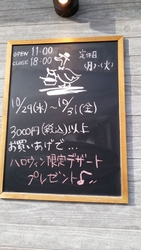 OPEN 11:00
CLOSE 18:00
定休日
(月)・(火)
10/29(水)〜10/31(金)
3000円(税込)以上
お買いあげで…
ハロウィン限定デザート
プレゼント♪